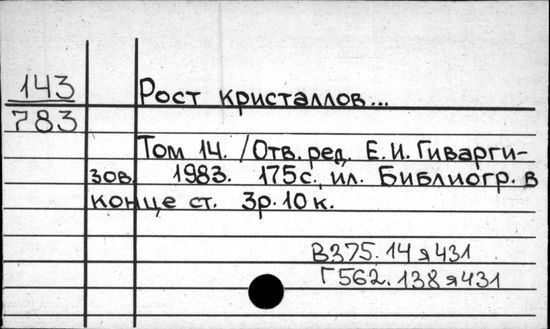 143
783
Рост кристаллов...
Том 14. /Отв. ред. Е.И. Гиварги-
зов. 1983. 175 с., ил. Библиогр. в
конце ст. 3р. 10 к.
В375.14я431
Г562.138я431